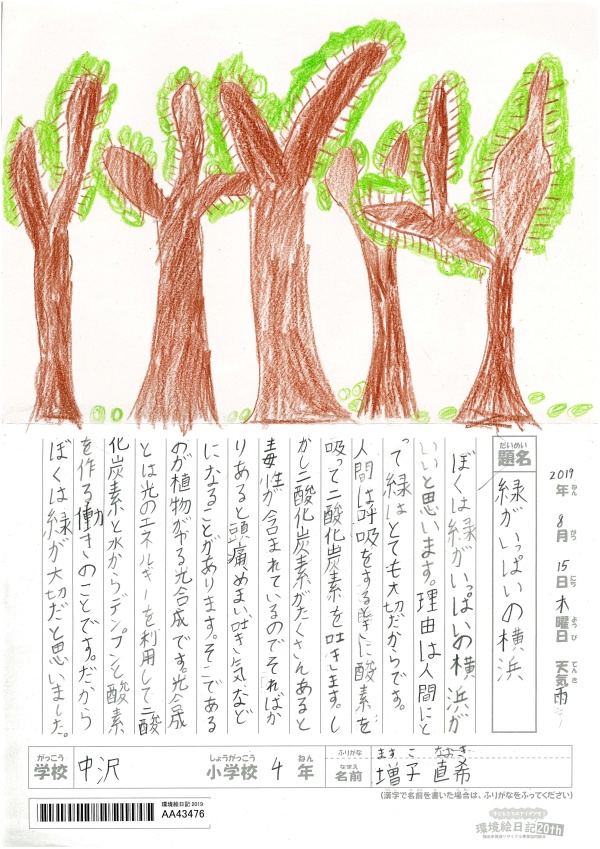 2019年 8月 15日 木曜日 天気 雨
ねん がつ にち よう び てん き
だいめい
題名
緑がいっぱいの横浜
ぼくは緑がいっぱいの横浜が
いいと思います。理由は人間にと
って緑はとても大切だからです。
人間は呼吸をするときに酸素を
吸って二酸化炭素を吐きます。し
かし二酸化炭素がたくさんあると
毒性が含まれているのでそればか
りあると頭痛、めまい、吐き気など
になることがあります。そこである
のが植物がやる光合成です。光合成
とは光のエネルギーを利用して二酸
化炭素と水からデンプンと酸素
を作る働きのことです。だから
ぼくは緑が大切だと思いました。
がっこう
学校
中沢
しょうがっこう
小学校
4
ねん
年
ふりがな
ますこ なおき
なまえ
名前
増子 直希
(漢字で名前を書いた場合は、ふりがなをふってください)
環境絵日記 2019
AA43476
環境絵日記20th